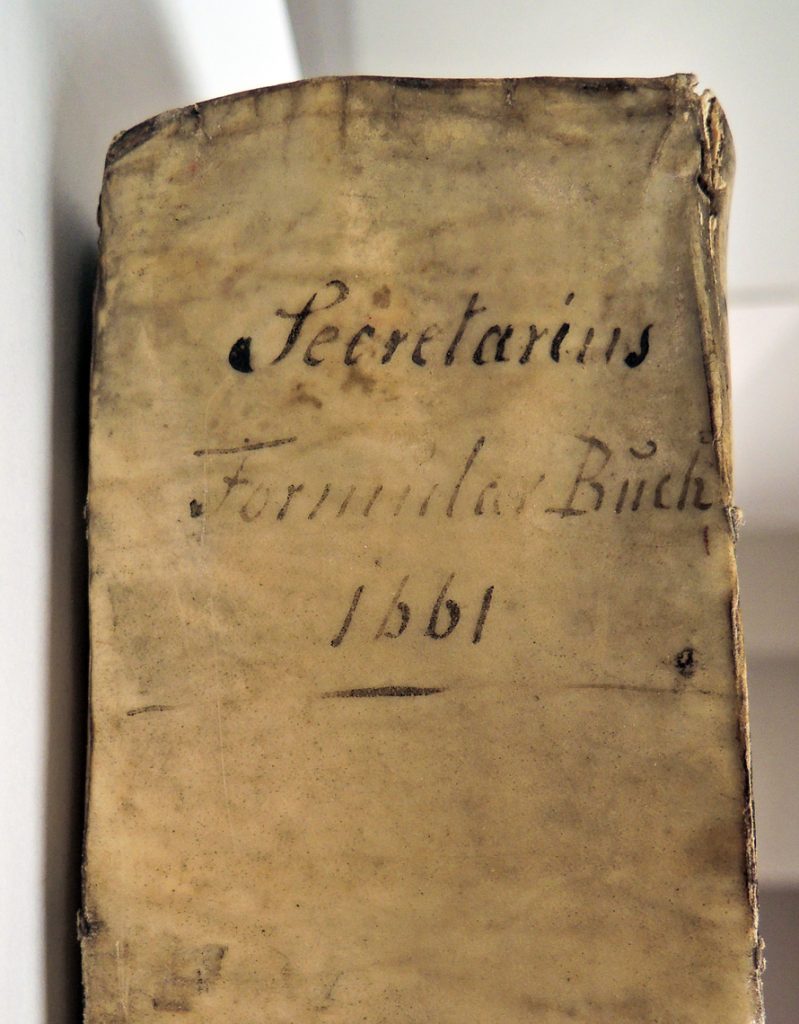 Secretarius
Formular Bŭch
1661